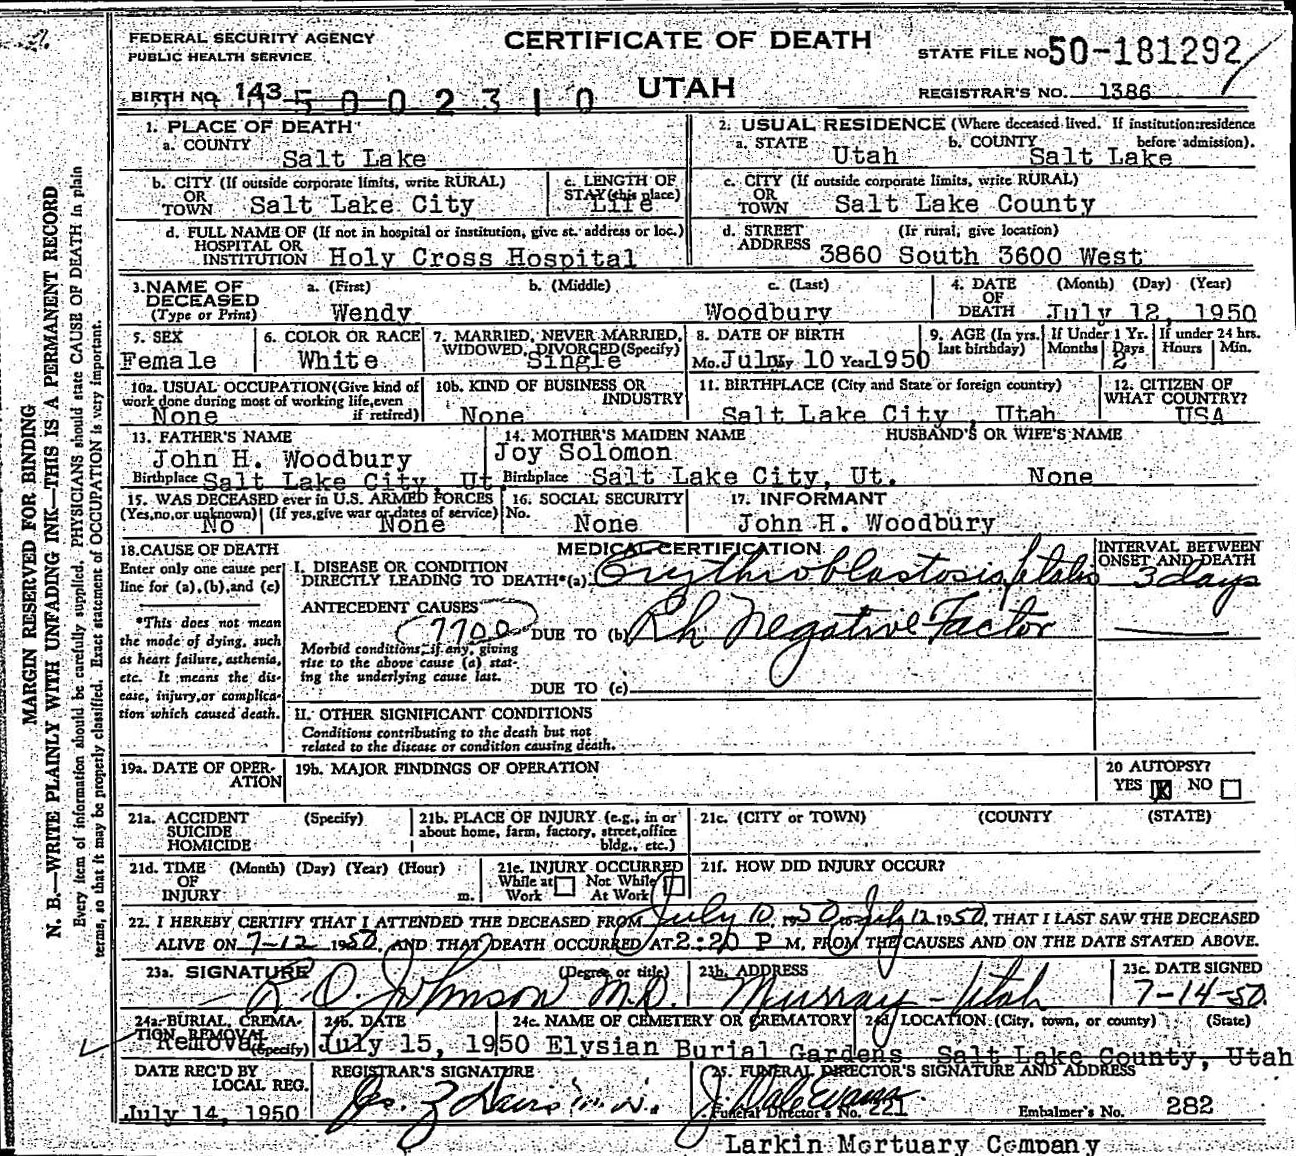 FEDERAL SECURITY AGENCY
PUBLIC HEALTH SERVICE
CERTIFICATE OF DEATH
STATE FILE NO. 50-181292
BIRTH NO. 143 5002310
UTAH
REGISTRAR'S NO. 1386
1. PLACE OF DEATH
a. COUNTY Salt Lake
2. USUAL RESIDENCE (Where deceased lived. If institution: residence before admission).
a. STATE Utah b. COUNTY Salt Lake
b. CITY (If outside corporate limits, write RURAL) OR TOWN Salt Lake City
c. LENGTH OF STAY (this place) Life
c. CITY (If outside corporate limits, write RURAL) OR TOWN Salt Lake County
d. FULL NAME OF (If not in hospital or institution, give st. address or loc.) HOSPITAL OR INSTITUTION Holy Cross Hospital
d. STREET ADDRESS (If rural, give location) 3860 South 3600 West
3. NAME OF DECEASED (Type or Print) a. (First) Wendy b. (Middle) c. (Last) Woodbury
4. DATE OF DEATH (Month) (Day) (Year) July 12, 1950
5. SEX Female
6. COLOR OR RACE White
7. MARRIED, NEVER MARRIED, WIDOWED, DIVORCED (Specify) Single
8. DATE OF BIRTH Mo. July Day 10 Year 1950
9. AGE (In yrs. last birthday) If Under 1 Yr. Months Days 2 If under 24 hrs. Hours Min.
10a. USUAL OCCUPATION (Give kind of work done during most of working life, even if retired) None
10b. KIND OF BUSINESS OR INDUSTRY None
11. BIRTHPLACE (City and State or foreign country) Salt Lake City, Utah
12. CITIZEN OF WHAT COUNTRY? USA
13. FATHER'S NAME John H. Woodbury
Birthplace Salt Lake City, Ut.
14. MOTHER'S MAIDEN NAME Joy Solomon
Birthplace Salt Lake City, Ut.
HUSBAND'S OR WIFE'S NAME None
15. WAS DECEASED ever in U.S. ARMED FORCES (Yes, no, or unknown) No (If yes, give war or dates of service) None
16. SOCIAL SECURITY No. None
17. INFORMANT John H. Woodbury
18. CAUSE OF DEATH
Enter only one cause per line for (a), (b), and (c)
*This does not mean the mode of dying, such as heart failure, asthenia, etc. It means the disease, injury, or complication which caused death.
MEDICAL CERTIFICATION
INTERVAL BETWEEN ONSET AND DEATH
I. DISEASE OR CONDITION DIRECTLY LEADING TO DEATH*(a) Erythroblastosis fetalis 3 days
ANTECEDENT CAUSES
7700 DUE TO (b) Rh Negative Factor
Morbid conditions, if any, giving rise to the above cause (a) stating the underlying cause last.
DUE TO (c)
II. OTHER SIGNIFICANT CONDITIONS
Conditions contributing to the death but not related to the disease or condition causing death.
19a. DATE OF OPERATION
19b. MAJOR FINDINGS OF OPERATION
20 AUTOPSY? YES X NO
21a. ACCIDENT SUICIDE HOMICIDE (Specify)
21b. PLACE OF INJURY (e.g., in or about home, farm, factory, street, office bldg., etc.)
21c. (CITY or TOWN) (COUNTY) (STATE)
21d. TIME OF INJURY (Month) (Day) (Year) (Hour) m.
21e. INJURY OCCURRED While at Work Not While At Work
21f. HOW DID INJURY OCCUR?
22. I HEREBY CERTIFY THAT I ATTENDED THE DECEASED FROM July 10, 1950 to July 12 1950, THAT I LAST SAW THE DECEASED
ALIVE ON 7-12 1950, AND THAT DEATH OCCURRED AT 2:20 P M, FROM THE CAUSES AND ON THE DATE STATED ABOVE.
23a. SIGNATURE (Degree or title) R. O. Johnson M.D.
23b. ADDRESS Murray - Utah
23c. DATE SIGNED 7-14-50
24a. BURIAL, CREMATION, REMOVAL (Specify) Removal
24b. DATE July 15, 1950
24c. NAME OF CEMETERY OR CREMATORY Elysian Burial Gardens
24d. LOCATION (City, town, or county) (State) Salt Lake County, Utah
DATE REC'D BY LOCAL REG. July 14, 1950
REGISTRAR'S SIGNATURE
25. FUNERAL DIRECTOR'S SIGNATURE AND ADDRESS J. Dale Evans
Funeral Director's No. 221 Embalmer's No. 282
Larkin Mortuary Company
MARGIN RESERVED FOR BINDING
N. B.—WRITE PLAINLY WITH UNFADING INK—THIS IS A PERMANENT RECORD
Every item of information should be carefully supplied. PHYSICIANS should state CAUSE OF DEATH in plain
terms, so that it may be properly classified. Exact statement of OCCUPATION is very important.